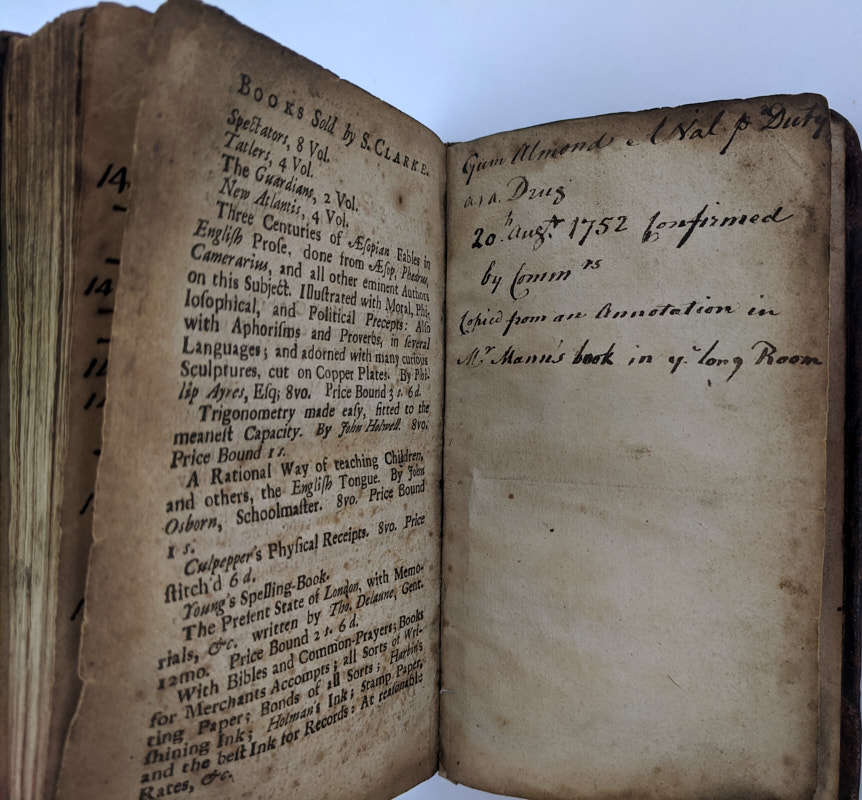 BOOKS Sold by S. CLARKE.
Spectators, 8 Vol.
Tatlers, 4 Vol.
The Guardians, 2 Vol.
New Atlantis, 4 Vol.
Three Centuries of Æſopian Fables in
Engliſh Proſe, done from Æſop, Phædrus,
Camerarius, and all other eminent Authors
on this Subject. Illuſtrated with Moral, Phi-
loſophical, and Political Precepts: Alſo
with Aphoriſms and Proverbs, in ſeveral
Languages; and adorned with many curious
Sculptures, cut on Copper Plates. By Phi-
lip Ayres, Eſq; 8vo. Price Bound 3 s. 6 d.
Trigonometry made eaſy, fitted to the
meaneſt Capacity. By John Holwell. 8vo.
Price Bound 1 s.
A Rational Way of teaching Children,
and others, the Engliſh Tongue. By John
Osborn, Schoolmaſter. 8vo. Price Bound
1 s.
Culpepper's Phyſical Receipts. 8vo. Price
ſtitch'd 6 d.
Young's Spelling-Book.
The Preſent State of London, with Memo-
rials, &c. written by Tho. Delaune, Gent.
12mo. Price Bound 2 s. 6 d.
With Bibles and Common-Prayers; Books
for Merchants Accompts; all Sorts of Wri-
ting Paper; Bonds of all Sorts; Harbin's
ſhining Ink; Holman's Ink; Stamp Paper,
and the beſt Ink for Records: At reaſonable
Rates, &c.
14
14
14
14
Gum Almond Val p Duty
as a Drug
20th Augt 1752 Confirmed
by Commrs
Copied from an Annotation in
Mr Mann's book in ye long Room